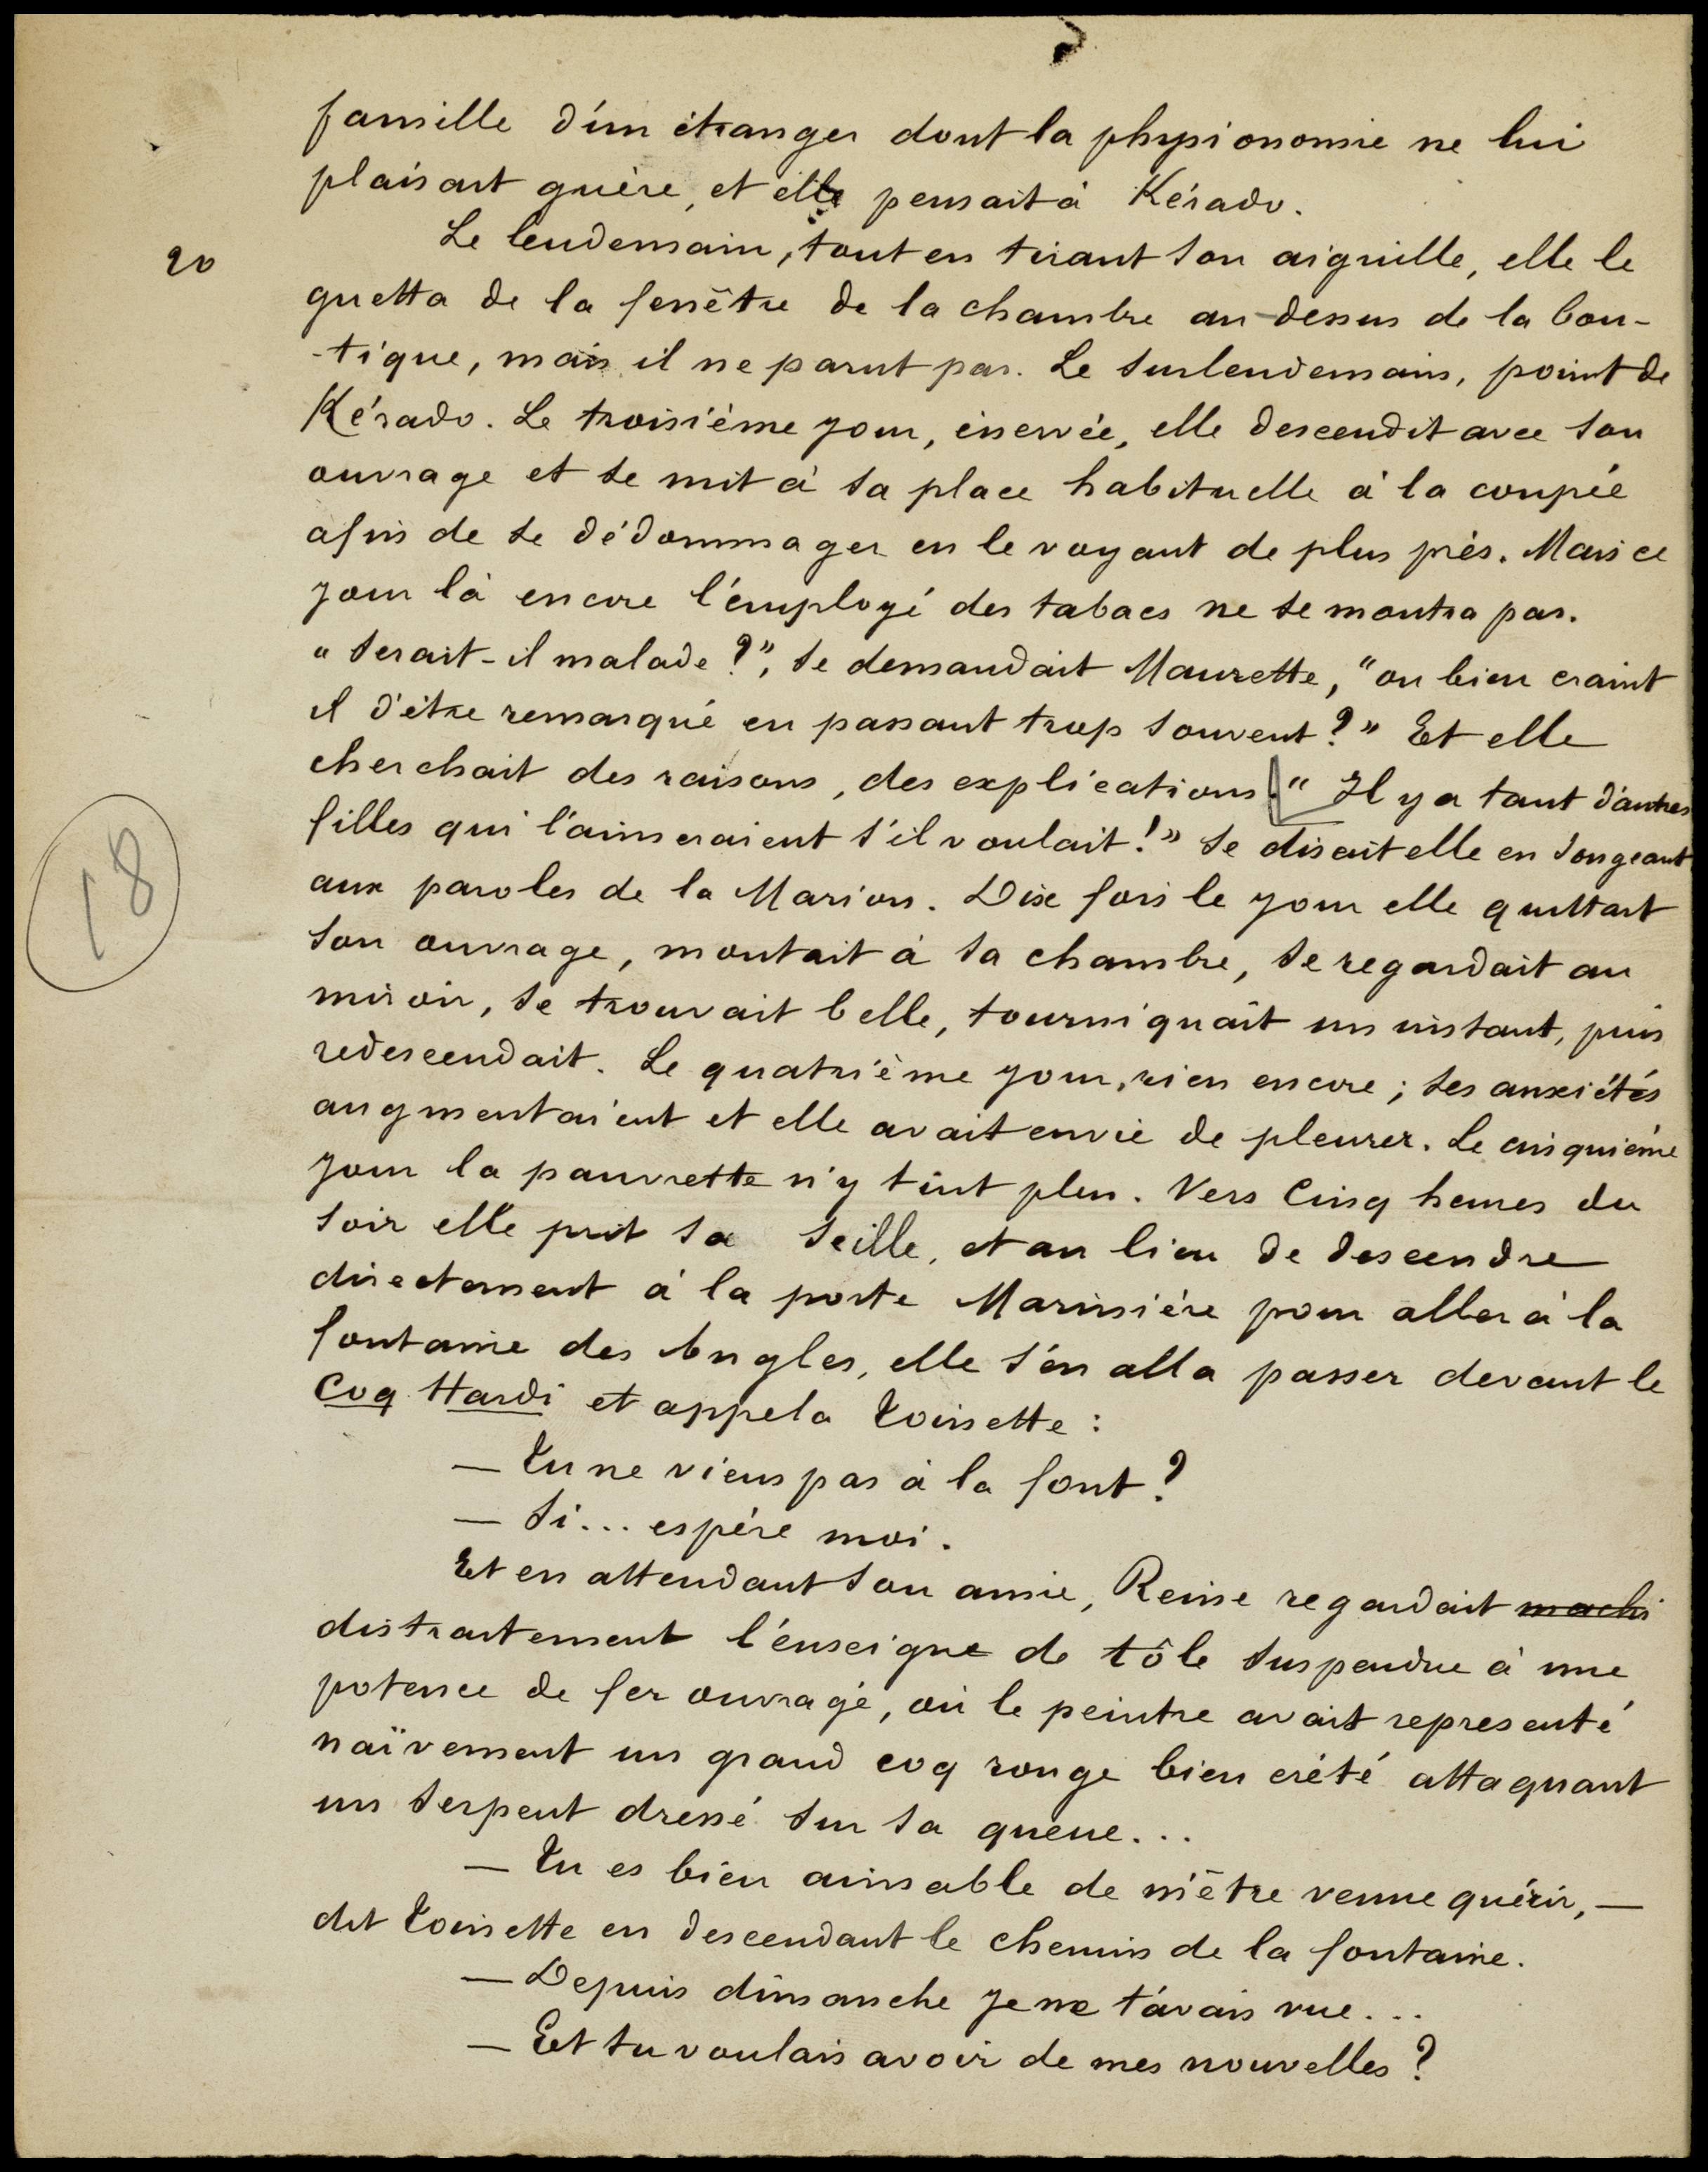 famille d'un étranger dont la physionomie ne lui
plaisait guère, et elle pensait à Kérado.
20
Le lendemain, tout en tirant son aiguille, elle le
guetta de la fenêtre de la chambre au-dessus de la bou-
-tique, mais il ne parut pas. Le surlendemain, point de
Kérado. Le troisième jour, énervée, elle descendit avec son
ouvrage et se mit à sa place habituelle à la coupée
afin de se dédommager en le voyant de plus près. Mais ce
jour là encore l'employé des tabacs ne se montra pas.
"Serait-il malade?", se demandait Maurette, "ou bien craint
il d'être remarqué en passant trop souvent?" Et elle
cherchait des raisons, des explications. [" Il y a tant d'autres
filles qui l'aimeraient s'il voulait!" se disait elle en songeant
aux paroles de la Marion. Dix fois le jour elle quittait
son ouvrage, montait à sa chambre, se regardait au
miroir, se trouvait belle, tourniquait un instant, puis
redescendait. Le quatrième jour, rien encore; ses anxiétés
augmentaient et elle avait envie de pleurer. Le cinquième
jour la pauvrette n'y tint plus. Vers cinq heures du
soir elle prit sa seille, et au lieu de descendre
directement à la porte Marinière pour aller à la
fontaine des Angles, elle s'en alla passer devant le
Coq Hardi et appela Toinette :
— Tu ne viens pas à la font?
— Si... espère moi.
Et en attendant son amie, Reine regardait machi
distraitement l'enseigne de tôle suspendue à une
potence de fer ouvragé, où le peintre avait representé
naïvement un grand coq rouge bien crété attaquant
un serpent dressé sur sa queue...
— Tu es bien aimable de m'être venue quérir, —
dit Toinette en descendant le chemin de la fontaine.
— Depuis dimanche je ne t'avais vue...
— Et tu voulais avoir de mes nouvelles?
18